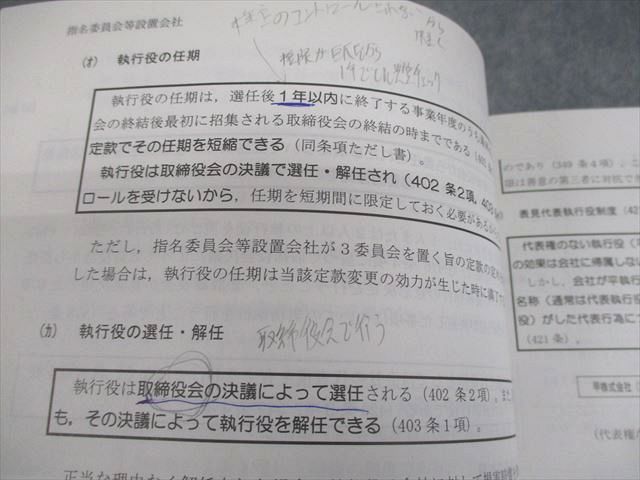 指名委員会等設置会社
株主のコントロール
(オ) 執行役の任期
1年
チェック
執行役の任期は，選任後１年以内に終了する事業年度のうち
会の終結後最初に招集される取締役会の終結の時までである
定款でその任期を短縮できる（同条項ただし書）。
執行役は取締役会の決議で選任・解任され（402 条2項，40
ロールを受けないから，任期を短期間に限定しておく必要がある
ただし，指名委員会等設置会社が３委員会を置く旨の定款の
した場合は，執行役の任期は当該定款変更の効力が生じた時に満了
(カ) 執行役の選任・解任
取締役会で行う
執行役は取締役会の決議によって選任される（402 条2項）。また
も，その決議によって執行役を解任できる（403 条1項）。
のであり（349 条4項）
限は善意の第三者に対抗でき
表見代表執行役制度（42
代表権のない執行役（
の効果は会社に帰属しな
しかし，会社が平執行
名称（通常は代表執行
役）がした代表行為に
（421 条）。
甲株式会社
（代表権